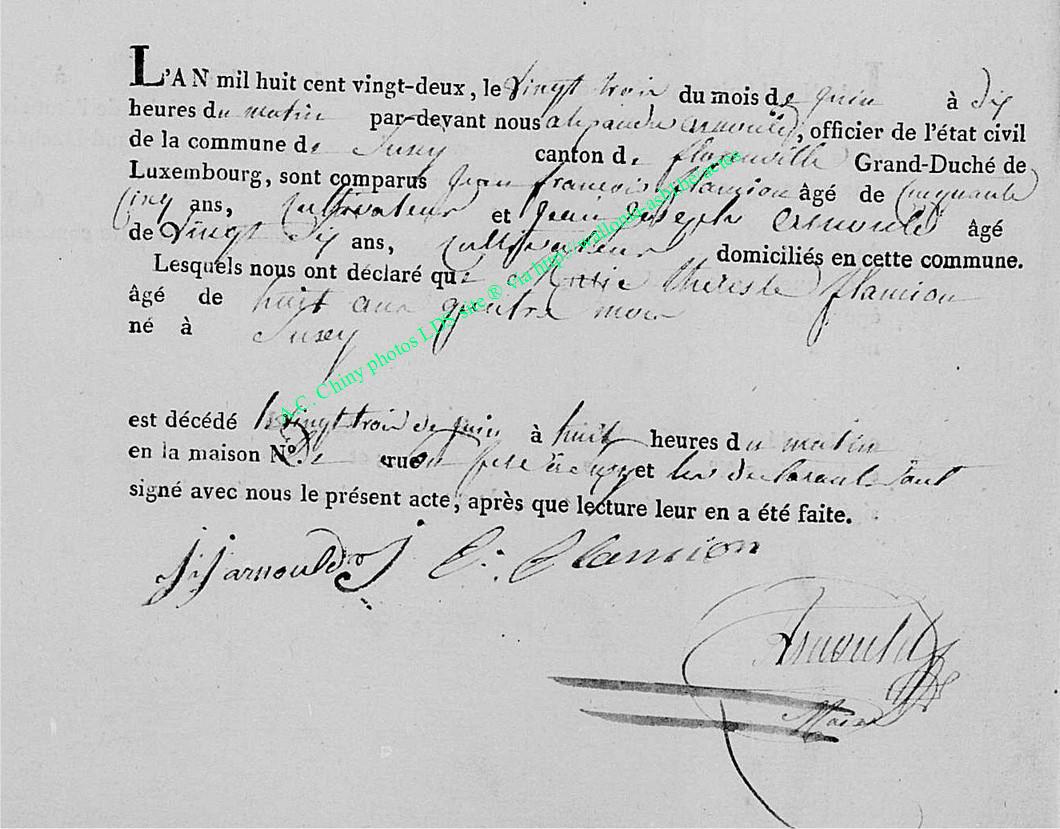 L'AN mil huit cent vingt-deux, le vingt trois du mois de juin à dix
heures du matin par-devant nous alexandre arnould, officier de l'état civil
de la commune de Suxy canton de florenville Grand-Duché de
Luxembourg, sont comparus Jean francois flamion âgé de Cinquante
Cinq ans, Cultivateur et Jean Joseph arnould âgé
de vingt Six ans, cultivateur domiciliés en cette commune.
Lesquels nous ont déclaré que Marie therese flamion
âgé de huit ans quatre mois
né à Suxey
est décédé le vingt trois de juin à huit heures du matin
en la maison No. de rue et les declarant ont
signé avec nous le présent acte, après que lecture leur en a été faite.
J: j arnould flamion
Arnould
Maire
A.C. Chiny photos LDS site ® via http://wallonia-asbl.be/actes